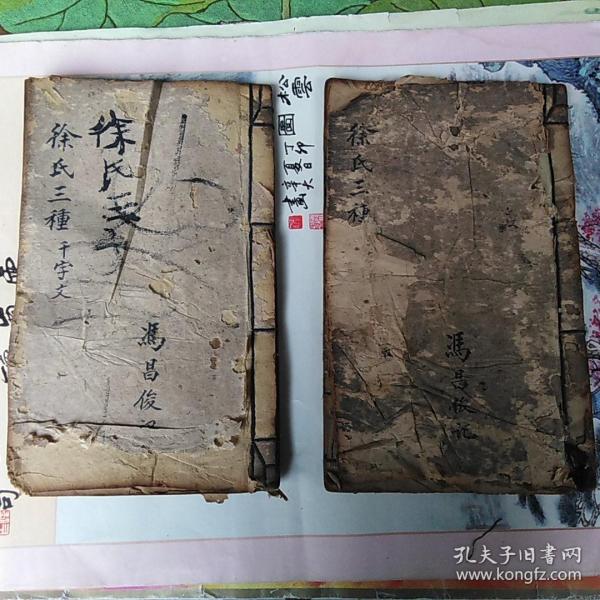 徐氏三
徐氏三種 千字文
馮昌俊記
松雲圖
丁卯夏日
徐氏三種
馮昌
孔夫子旧书网
www.kongfz.com